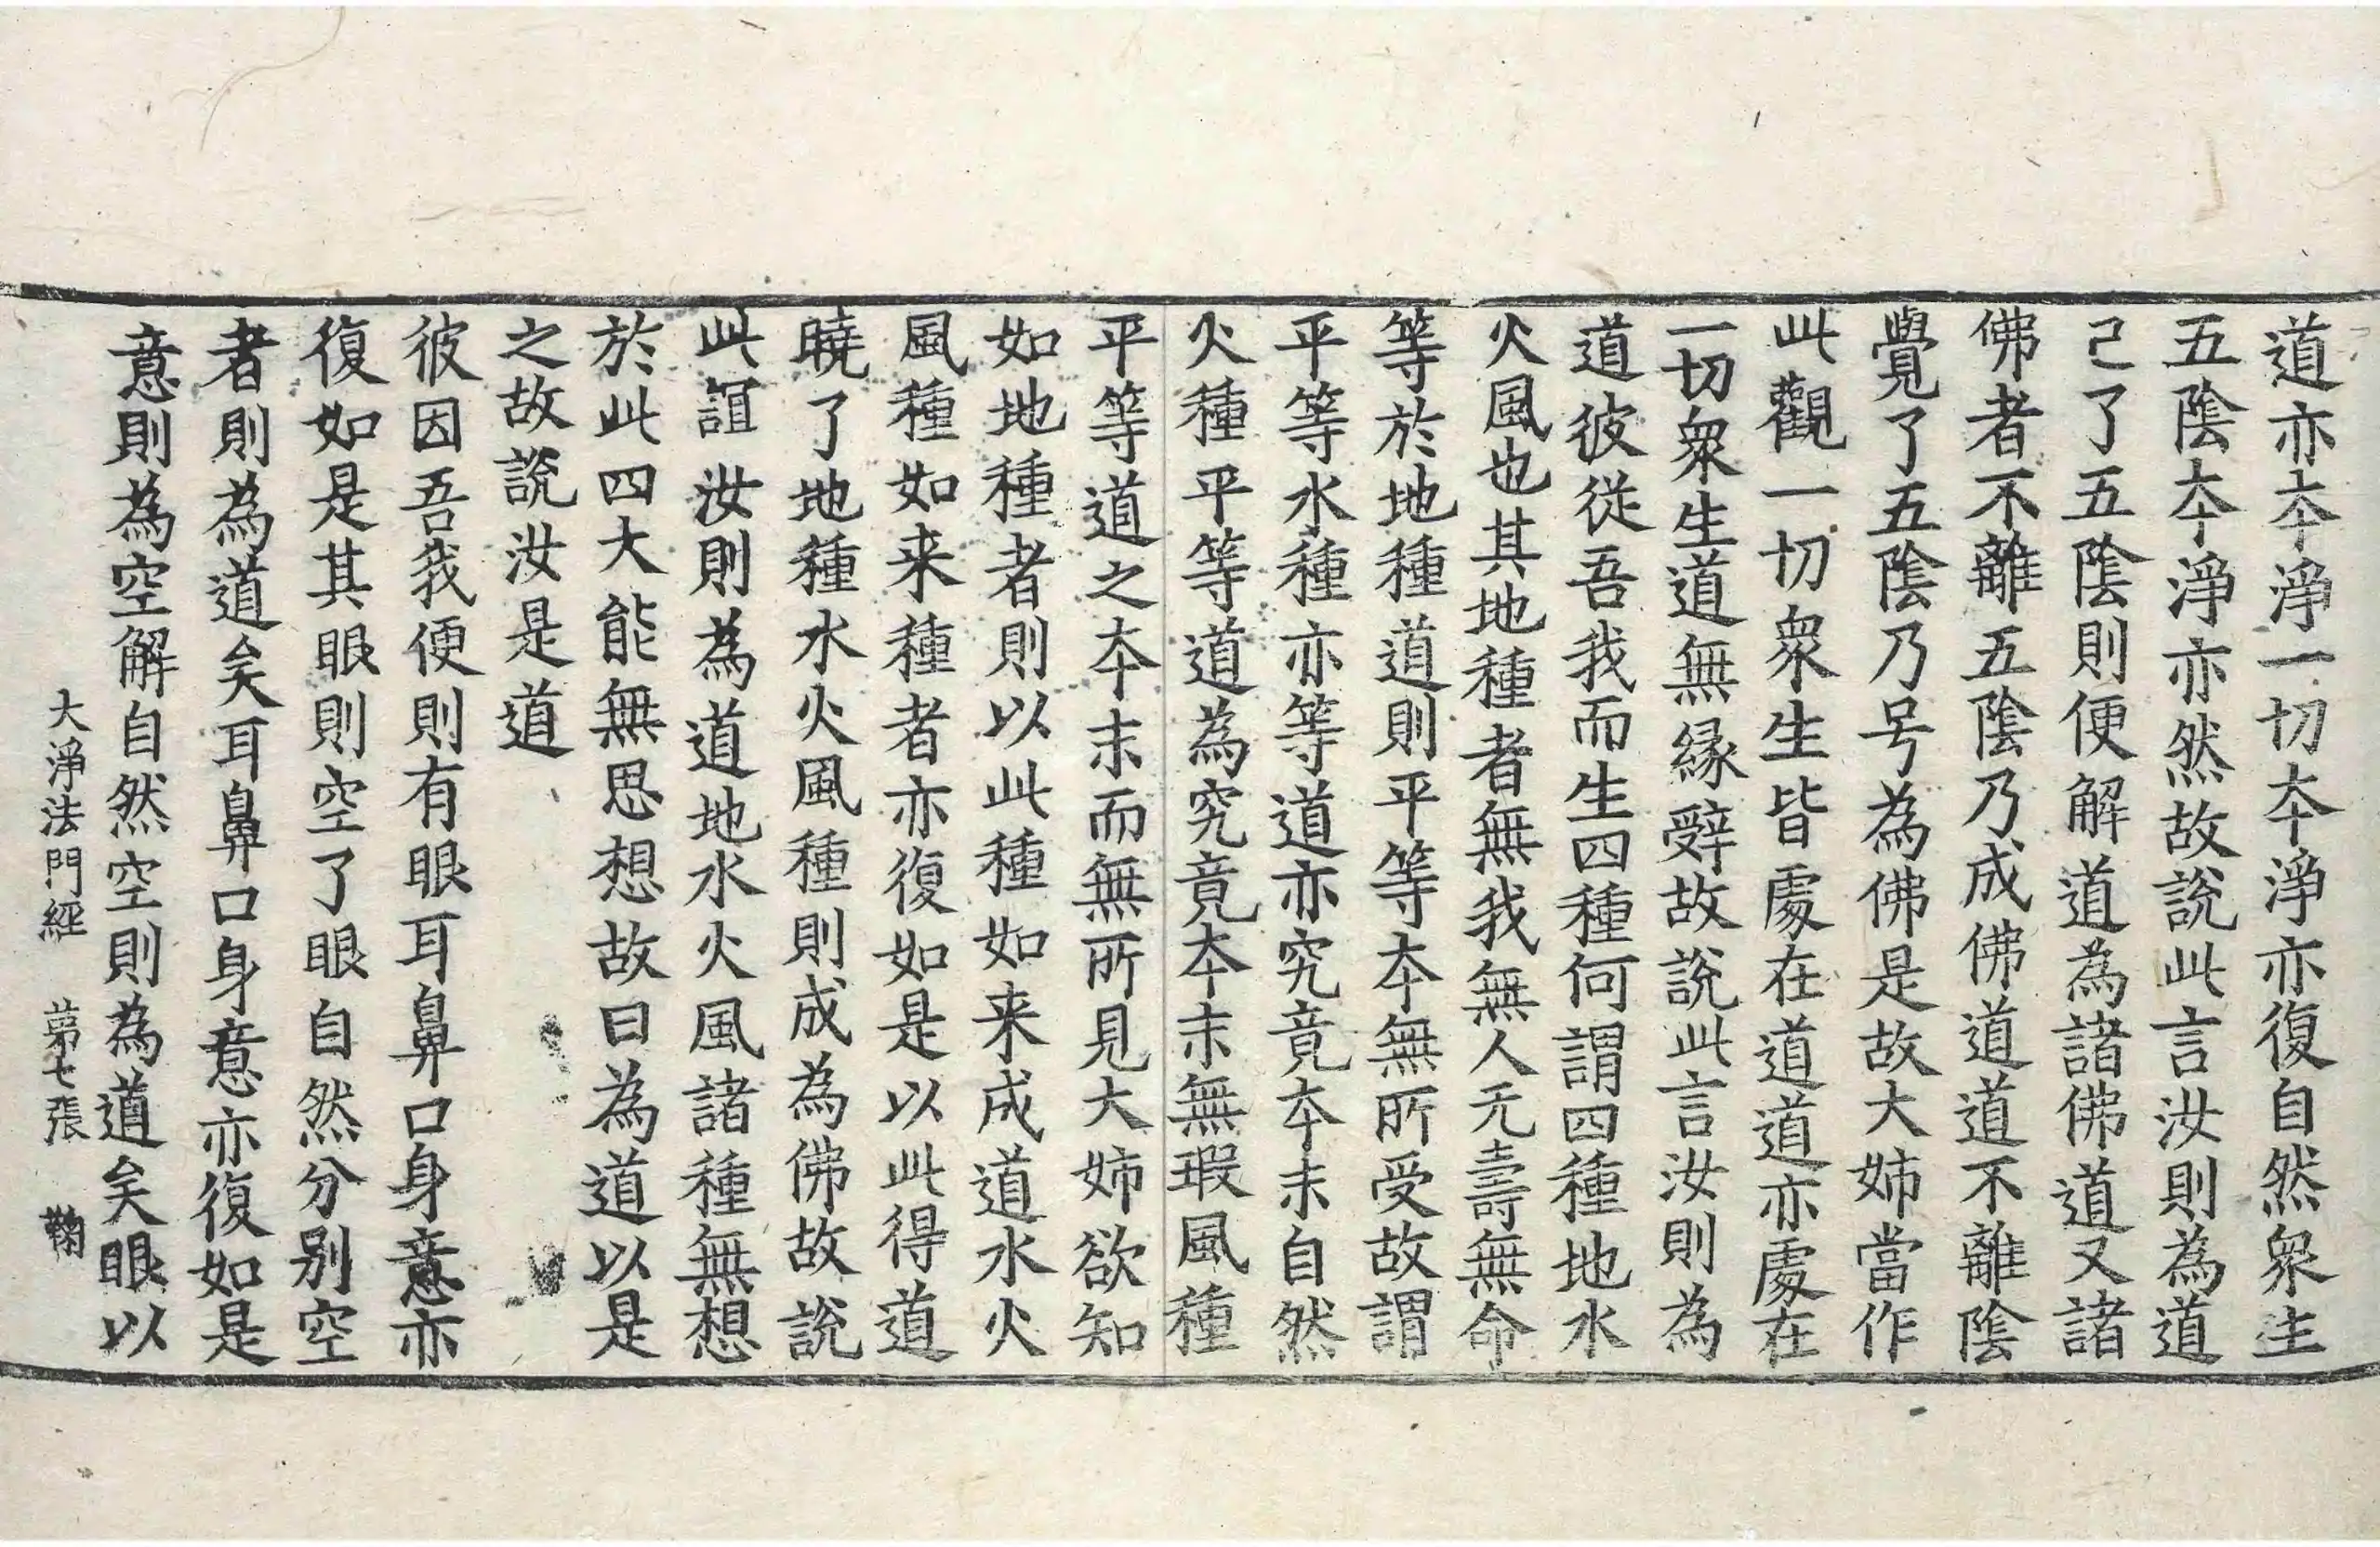 道亦夲淨一切夲淨亦復自然衆生
五陰夲淨亦然故說此言汝則為道
已了五陰則便解道為諸佛道又諸
佛者不離五陰乃成佛道道不離陰
覺了五陰乃号為佛是故大姉當作
此觀一切衆生皆處在道道亦處在
一切衆生道無縁辤故說此言汝則為
道彼從吾我而生四種何謂四種地水
火風也其地種者無我無人无壽無命
等於地種道則平等夲無所受故謂
平等水種亦等道亦究竟夲末自然
火種平等道為究竟夲末無瑕風種
平等道之夲末而無所見大姉欲知
如地種者則以此種如来成道水火
風種如来種者亦復如是以此得道
曉了地種水火風種則成為佛故說
此誼汝則為道地水火風諸種無想
於此四大能無思想故曰為道以是
之故說汝是道
彼因吾我便則有眼耳鼻口身意亦
復如是其眼則空了眼自然分别空
者則為道矣耳鼻口身意亦復如是
意則為空解自然空則為道矣眼以
大淨法門經 苐七張 鞠